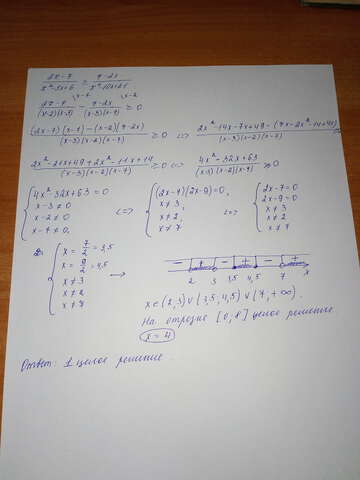 (2x-7)/(x²-5x+6) ≥ (9-2x)/(x²-10x+21)
x-7 x-2
(2x-7)/((x-2)(x-3)) - (9-2x)/((x-3)(x-7)) ≥ 0
((2x-7)(x-7)-(x-2)(9-2x))/((x-3)(x-2)(x-7)) ≥ 0 ⇔ (2x²-14x-7x+49-(9x-2x²-18+4x))/((x-3)(x-2)(x-7))
(2x²-21x+49+2x²-11x+14)/((x-3)(x-2)(x-7)) ≥ 0 ⇔ (4x²-32x+63)/((x-3)(x-2)(x-7)) ≥ 0
{ 4x²-32x+63=0 ⇔ { (2x-7)(2x-9)=0 ⇔ { 2x-7=0
x-3≠0 x≠3, 2x-9=0
x-2≠0 x≠2, x≠3
x-7≠0, x≠7 x≠2
x≠7
{ x=7/2=3,5
x=9/2=4,5
x≠3
x≠2
x≠7
→ - + - + - + x
2 3 3,5 4,5 7
x∈(2,3)∨(3,5,4,5)∨(7,+∞).
На отрезке [0,1] целое решение
x=4
Ответ: 1 целое решение.